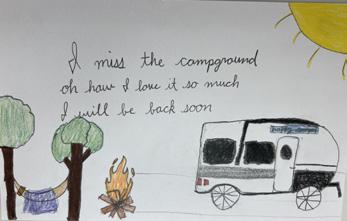 I miss the campground
oh how I love it so much
I will be back soon